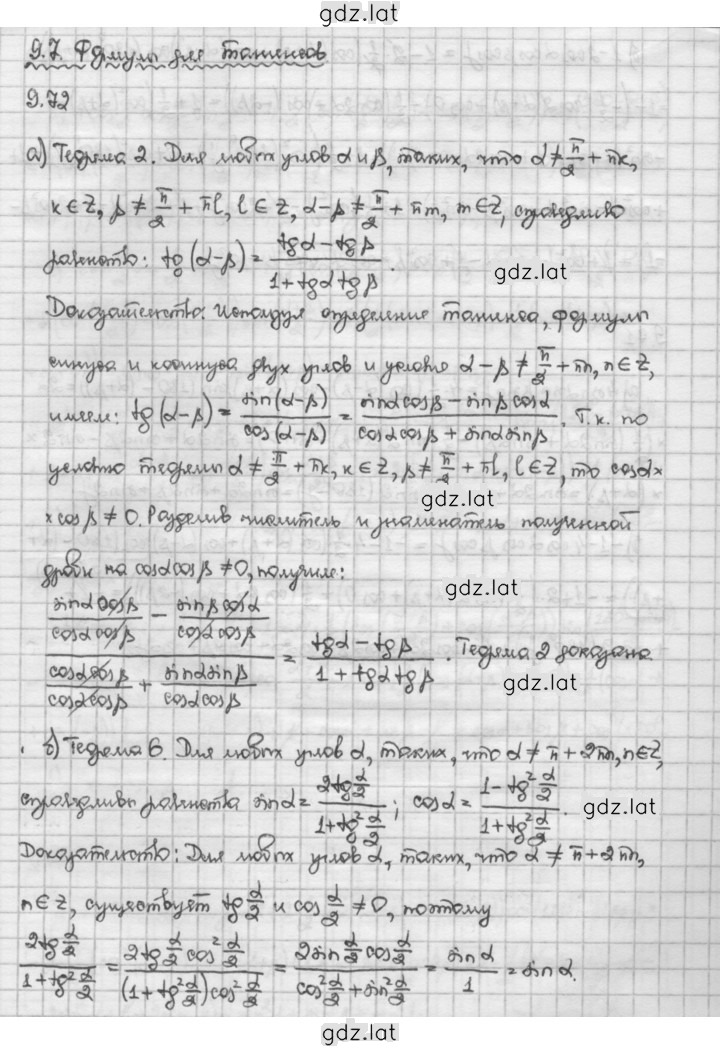 gdz.lat
9.7. Формулы для тангенсов
9.72
а) Теорема 2. Для любых углов α и β, таких, что α ≠ π/2 + πk,
k ∈ Z, β ≠ π/2 + πl, l ∈ Z, α-β ≠ π/2 + πm, m ∈ Z, справедливо
равенство: tg(α-β) = (tgα - tgβ)/(1 + tgα tgβ).
gdz.lat
Доказательство: Используя определение тангенса, формулы
синуса и косинуса двух углов и условие α-β ≠ π/2 + πn, n ∈ Z,
имеем: tg(α-β) = sin(α-β)/cos(α-β) = (sinα cosβ - sinβ cosα)/(cosα cosβ + sinα sinβ). Т.к. по
условию теоремы α ≠ π/2 + πk, k ∈ Z, β ≠ π/2 + πl, l ∈ Z, то cosα×
gdz.lat
× cosβ ≠ 0. Разделив числитель и знаменатель полученной
дроби на cosα cosβ ≠ 0, получим:
gdz.lat
(sinα cosβ/(cosα cosβ) - sinβ cosα/(cosα cosβ))/(cosα cosβ/(cosα cosβ) + sinα sinβ/(cosα cosβ)) = (tgα - tgβ)/(1 + tgα tgβ). Теорема 2 доказана
gdz.lat
б) Теорема 6. Для любых углов α, таких, что α ≠ π + 2πn, n ∈ Z,
справедливы равенства sinα = 2tg α/2/(1 + tg² α/2); cosα = (1 - tg² α/2)/(1 + tg² α/2).
gdz.lat
Доказательство: Для любых углов α, таких, что α ≠ π + 2πn,
n ∈ Z, существует tg α/2 и cos α/2 ≠ 0, поэтому
2tg α/2/(1 + tg² α/2) = 2tg α/2 cos² α/2/((1 + tg² α/2) cos² α/2) = 2sin α/2 cos α/2/(cos² α/2 + sin² α/2) = sinα/1 = sinα.
gdz.lat